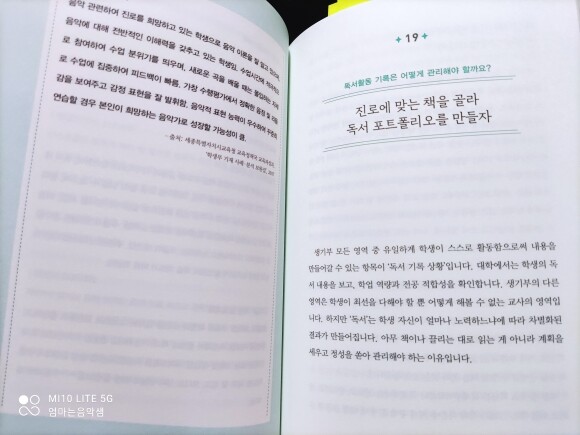 음악 관련하여 진로를 희망하고 있는 학생으로 음악 이론을 잘 알고
음악에 대해 전반적인 이해력을 갖추고 있는 학생임. 수업시간에
로 참여하여 수업 분위기를 띄우며, 새로운 곡을 배울 때는
로 수업에 집중하여 피드백이 빠름. 가창 수행평가에서 정확한 음정
감을 보여주고 감정 표현을 잘 발휘함. 음악적 표현 능력이 우수하여
연습할 경우 본인이 희망하는 음악가로 성장할 가능성이 큼.
-출처: 세종특별자치시교육청
MI10 LITE 5G
엄마는음악샘
19
독서활동 기록은 어떻게 관리해야 할까요?
진로에 맞는 책을 골라
독서 포트폴리오를 만들자
생기부 모든 영역 중 유일하게 학생이 스스로 활동함으로써 내용을
만들어갈 수 있는 항목이 '독서 기록 상황'입니다. 대학에서는 학생의 독
서 내용을 보고, 학업 역량과 전공 적합성을 확인합니다. 생기부의 다른
영역은 학생이 최선을 다해야 할 뿐 어떻게 해볼 수 없는 교사의 영역입
니다. 하지만 '독서'는 학생 자신이 얼마나 노력하느냐에 따라 차별화된
결과가 만들어집니다. 아무 책이나 끌리는 대로 읽는 게 아니라 계획을
세우고 정성을 쏟아 관리해야 하는 이유입니다.